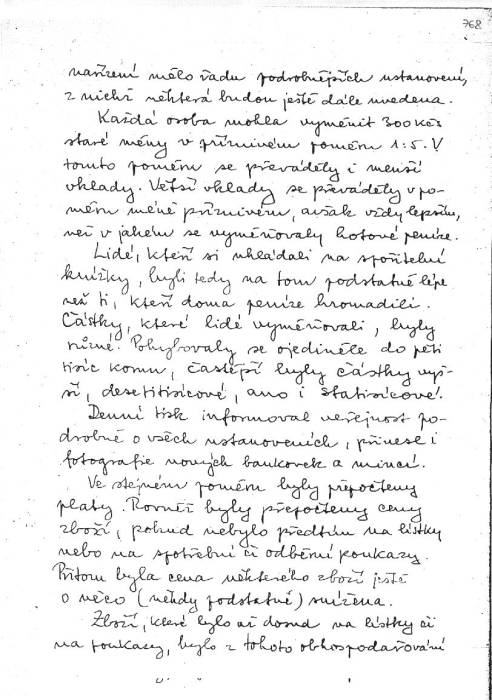 768
nařízení mělo řadu podrobnějších ustanovení,
z nichž některá budou ještě dále uvedena.
Každá osoba mohla vyměnit 300 Kčs
staré měny v příznivém poměru 1:5. V
tomto poměru se převáděly i menší
vklady. Větší vklady se převáděly v po-
měru méně příznivém, avšak vždy lepším,
než v jakém se vyměňovaly hotové peníze.
Lidé, kteří si ukládali na spořitelní
knížky, byli tedy na tom podstatně lépe
než ti, kteří doma peníze hromadili.
Částky, které lidé vyměňovali, byly
různé. Pohybovaly se ojediněle do pěti
tisíc korun, častější byly částky vyš-
ší, desetitisícové, ano i statisícové!
Denní tisk informoval veřejnost po-
drobně o všech ustanoveních, přinesl i
fotografie nových bankovek a mincí.
Ve stejném poměru byly přepočteny
platy. Rovněž byly přepočteny ceny
zboží, pokud nebylo předtím na lístky
nebo na spotřební či odběrní poukazy.
Přitom byla cena některého zboží ještě
o něco (někdy podstatně) snížena.
Zboží, které bylo až dosud na lístky či
na poukazy, bylo z tohoto obhospodařování